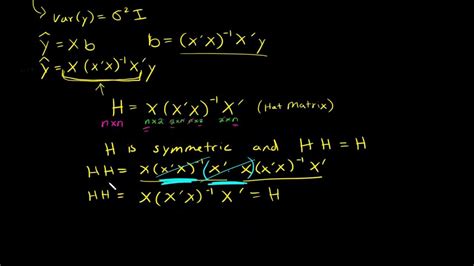 var(y) = σ² I
ŷ = X b b = (X'X)⁻¹ X'y
ŷ = X (X'X)⁻¹ X' y
H = X (X'X)⁻¹ X' (Hat matrix)
n×n n×2 2×n n×2 2×n
H is symmetric and H H = H
H H = X(X'X)⁻¹ (X' X)(X'X)⁻¹ X'
H H = X(X'X)⁻¹ X' = H